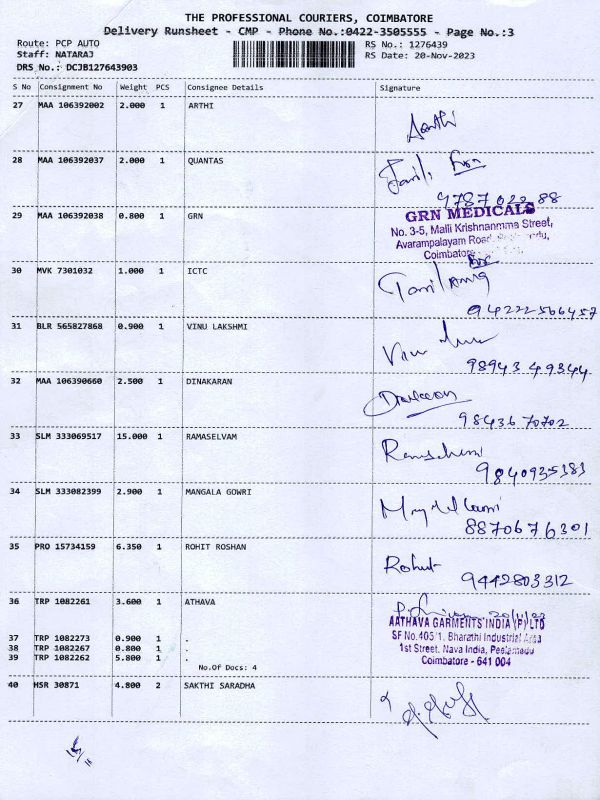 THE PROFESSIONAL COURIERS, COIMBATORE
Delivery Runsheet - CMP - Phone No.:0422-3505555 - Page No.:3
Route: PCP AUTO RS No.: 1276439
Staff: NATARAJ RS Date: 20-Nov-2023
DRS No.: DCJB127643903
S No Consignment No Weight PCS Consignee Details Signature
27 MAA 106392002 2.000 1 ARTHI
28 MAA 106392037 2.000 1 QUANTAS
29 MAA 106392038 0.800 1 GRN
GRN MEDICALS
No. 3-5, Malli Krishnanmma Street,
Avarampalayam Road,
Coimbatore
30 MVK 7301032 1.000 1 ICTC
31 BLR 565827868 0.900 1 VINU LAKSHMI
98943 49344
32 MAA 106390660 2.500 1 DINAKARAN
98436 70702
33 SLM 333069517 15.000 1 RAMASELVAM
9840935383
34 SLM 333082399 2.900 1 MANGALA GOWRI
8870676301
35 PRO 15734159 6.350 1 ROHIT ROSHAN
Rohit
9442803312
36 TRP 1082261 3.600 1 ATHAVA
AATHAVA GARMENTS INDIA (P) LTD
SF No.405/1, Bharathi Industrial Area
1st Street, Nava India, Peelamedu
Coimbatore - 641 004
37 TRP 1082273 0.900 1 .
38 TRP 1082267 0.800 1 .
39 TRP 1082262 5.800 1 .
No.Of Docs: 4
40 HSR 30871 4.800 2 SAKTHI SARADHA